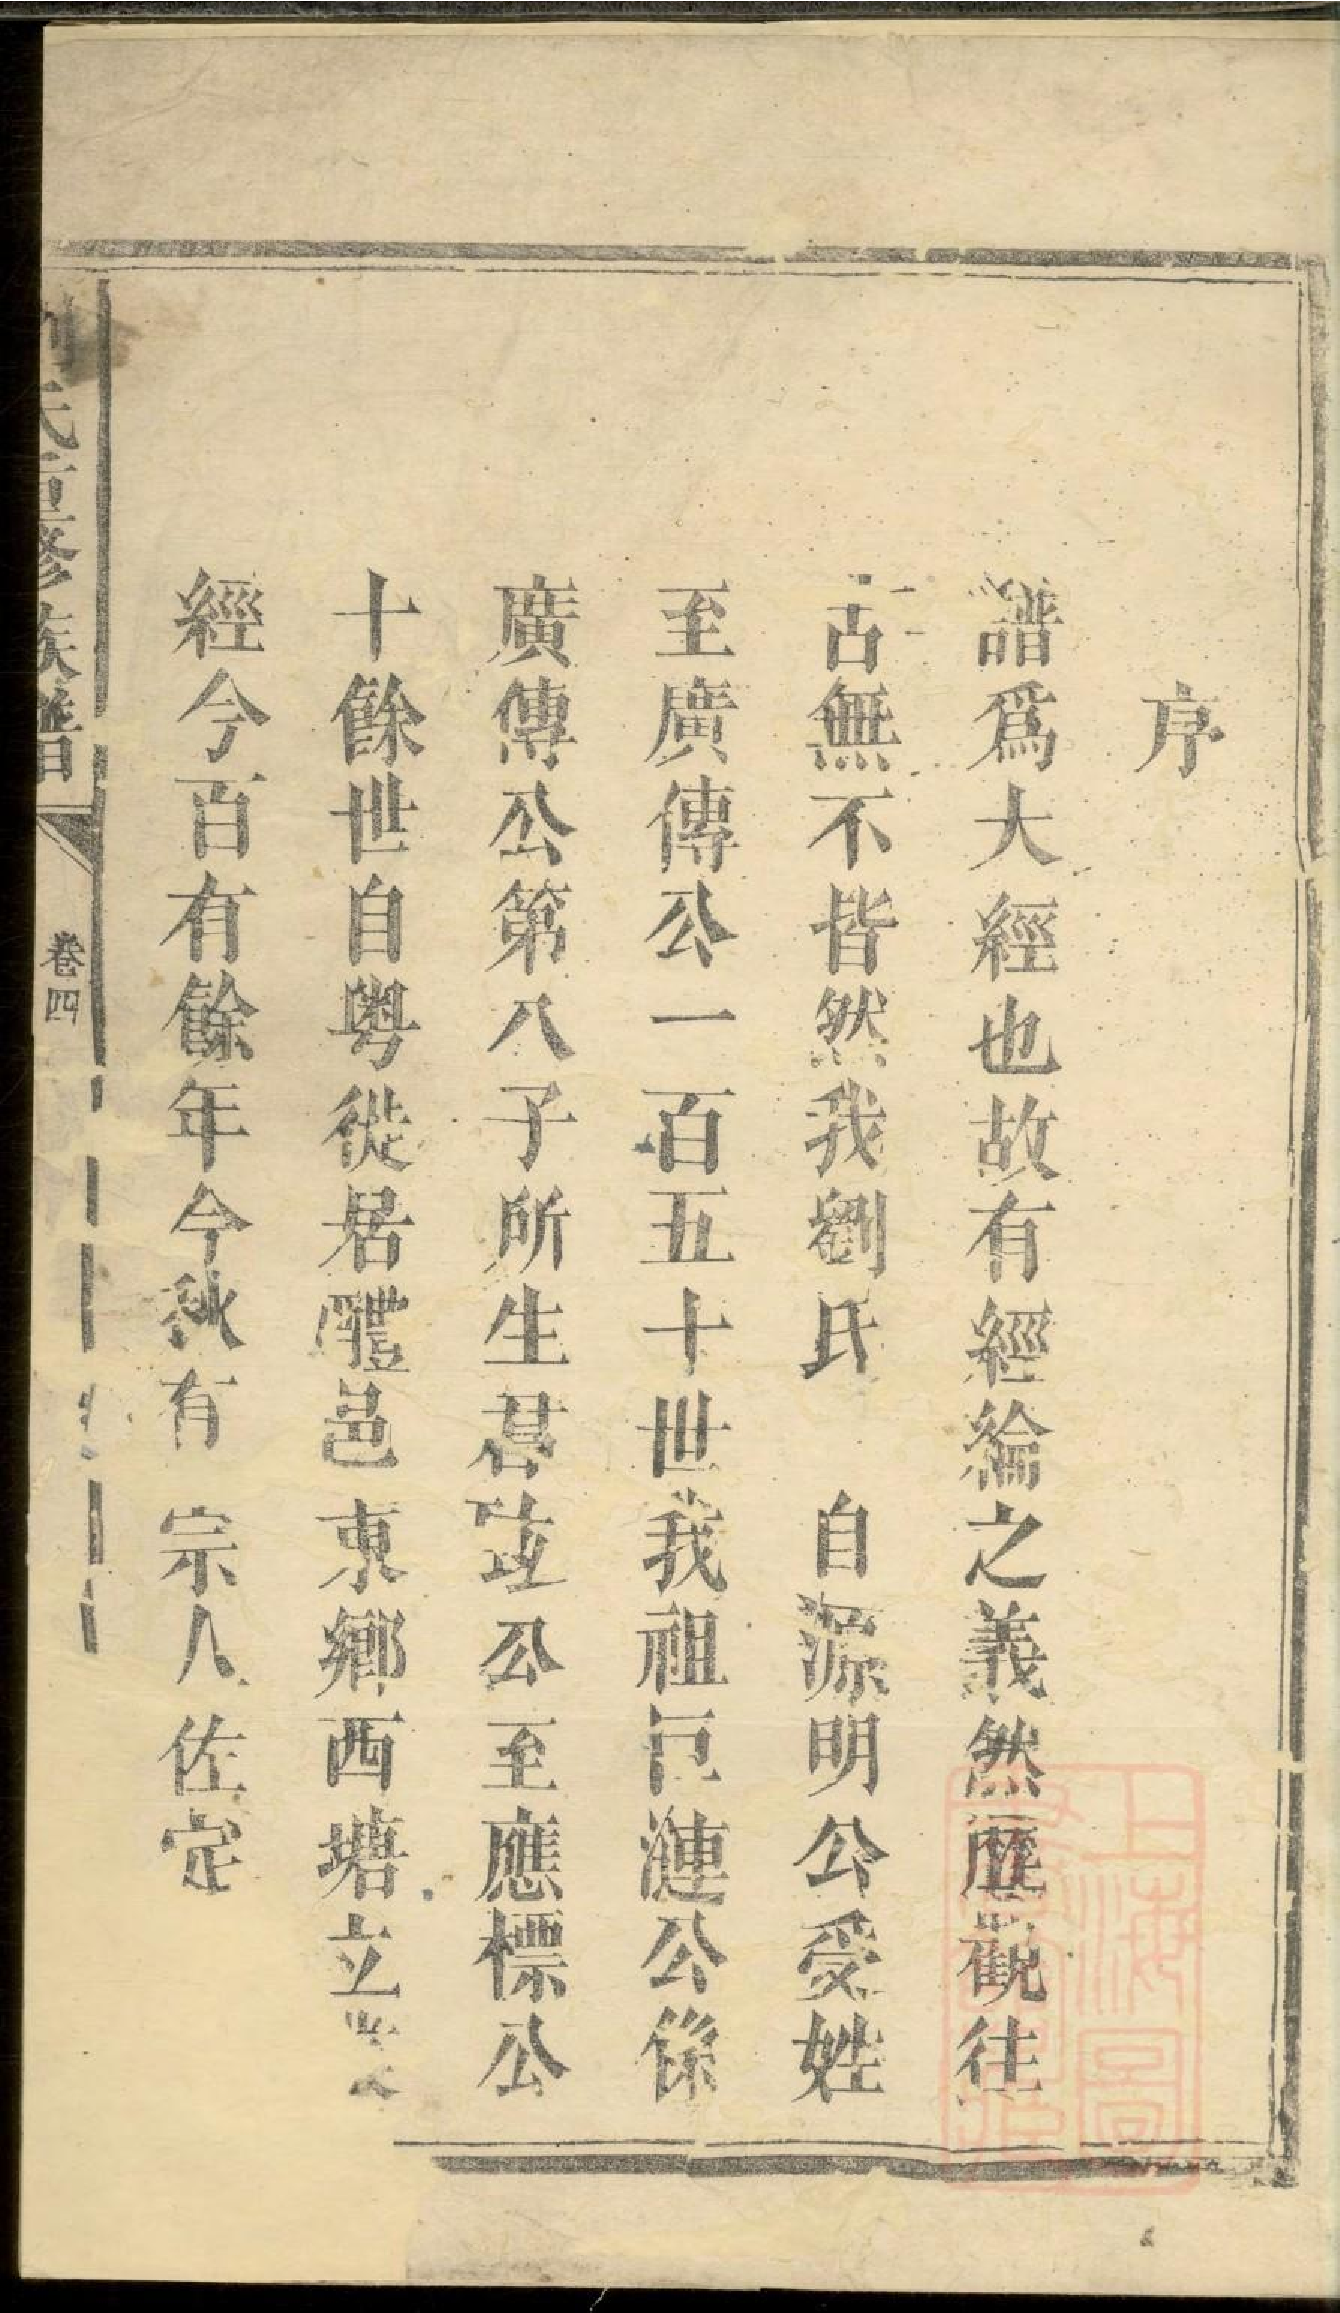 序
譜爲大經也故有經綸之義然歷觀往
古無不皆然我劉氏　自源明公受姓
至廣傳公一百五十世我祖巨漣公係
廣傳公第八子所生君竝公至應標公
十餘世自粤徙居醴邑東鄉西塘立業
經今百有餘年今秋有　宗人佐定
劉氏重修族譜
卷四
上海圖